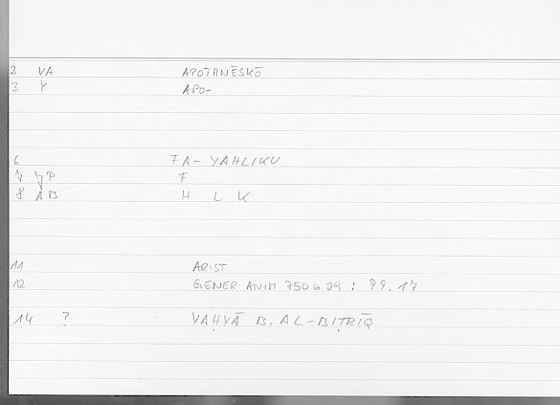 2 VA APOTHNĒSKŌ
3 Y APO-
6 FA-YAHLIKU
7 YP F
8 AB H L K
11 ARIST
12 GENER ANIM 750 a 29 : 99.17
14 ? YAḤYĀ B. AL-BIṬRĪQ